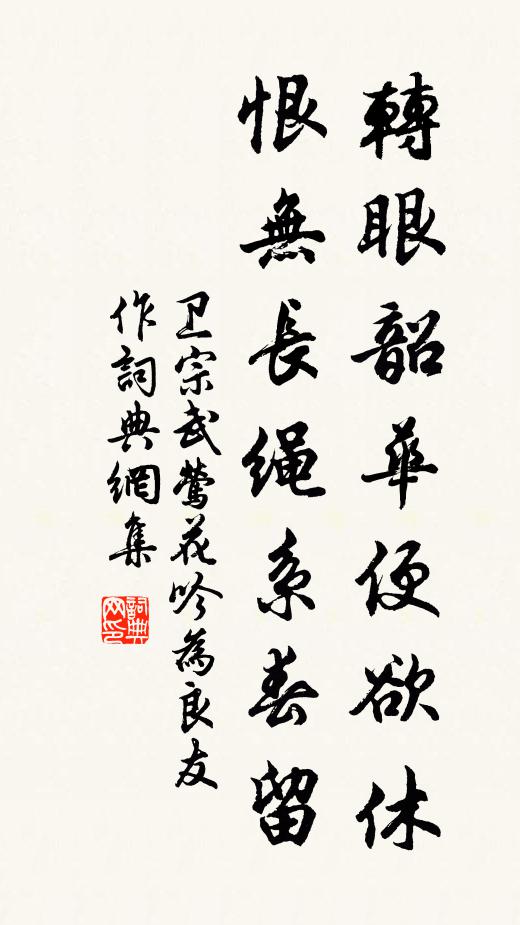 轉眼韶華便欲休
恨無長绳系春留
卫宗武鶯花吟為良友
作詞典網集
詞典网印